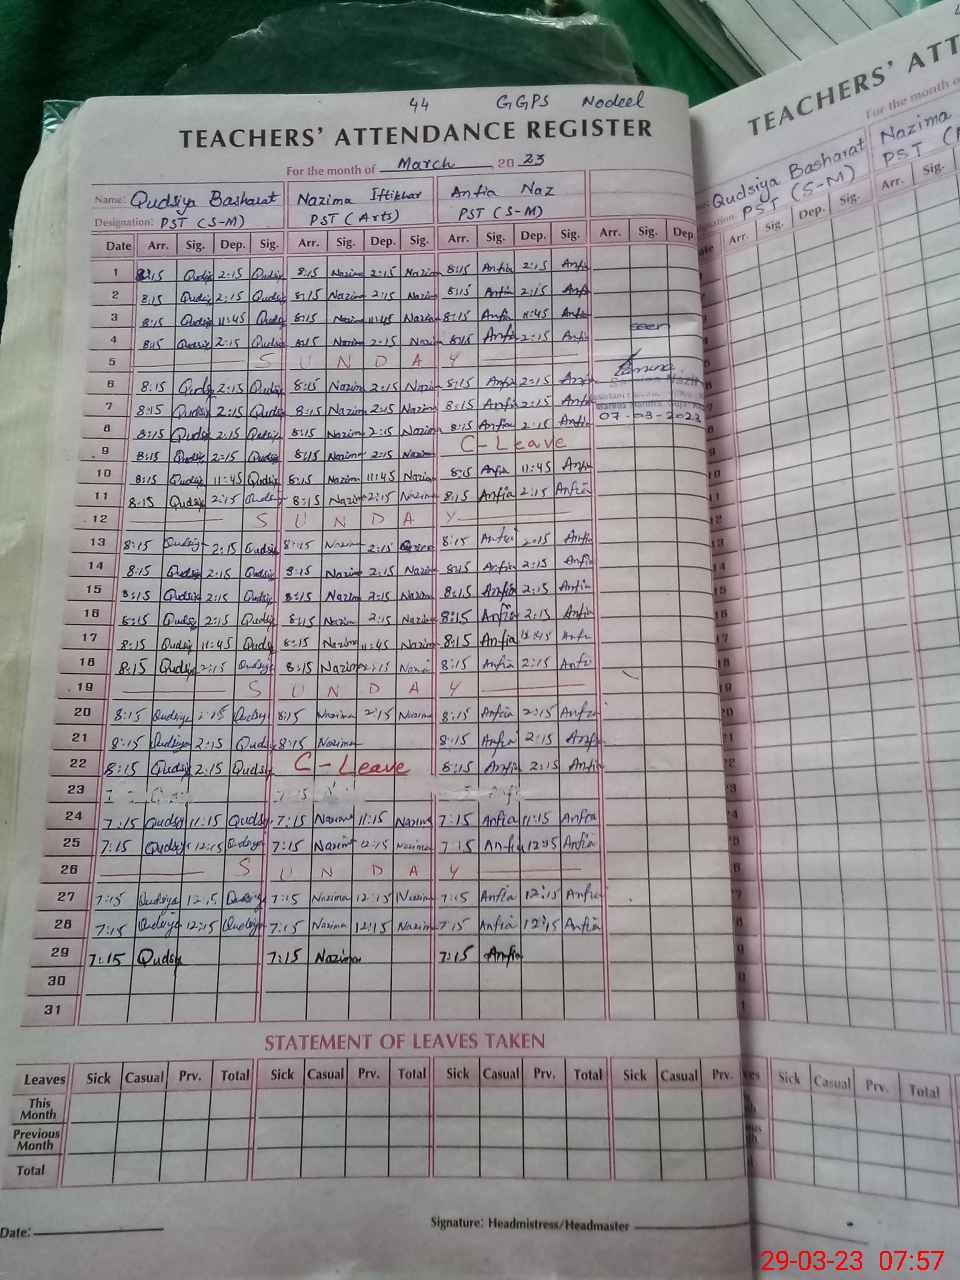 44 GGPS Nodeel
TEACHERS' ATTENDANCE REGISTER
For the month of March, 2023
Name: Qudsiya Basharat Nazima Iftikhar Anfia Naz
Designation: PST (S-M) PST (Arts) PST (S-M)
Date Arr. Sig. Dep. Sig. Arr. Sig. Dep. Sig. Arr. Sig. Dep. Sig. Arr. Sig. Dep.
1 8:15 Qudsiy 2:15 Qudsiy 8:15 Nazima 2:15 Nazima 8:15 Anfia 2:15 Anfia
2 8:15 Qudsiy 2:15 Qudsiy 8:15 Nazima 2:15 Nazima 8:15 Anfia 2:15 Anfia
3 8:15 Qudsiy 11:45 Qudsiy 8:15 Nazima 11:45 Nazima 8:15 Anfia 11:45 Anfia
4 8:15 Qudsiy 2:15 Qudsiy 8:15 Nazima 2:15 Nazima 8:15 Anfia 2:15 Anfia seen
5 S U N D A Y
6 8:15 Qudsiy 2:15 Qudsiy 8:15 Nazima 2:15 Nazima 8:15 Anfia 2:15 Anfia
7 8:15 Qudsiy 2:15 Qudsiy 8:15 Nazima 2:15 Nazima 8:15 Anfia 2:15 Anfia 07-03-2023
8 8:15 Qudsiy 2:15 Qudsiy 8:15 Nazima 2:15 Nazima 8:15 Anfia 2:15 Anfia
9 8:15 Qudsiy 2:15 Qudsiy 8:15 Nazima 2:15 Nazima C-Leave
10 8:15 Qudsiy 11:45 Qudsiy 8:15 Nazima 11:45 Nazima 8:15 Anfia 11:45 Anfia
11 8:15 Qudsiy 2:15 Qudsiy 8:15 Nazima 2:15 Nazima 8:15 Anfia 2:15 Anfia
12 S U N D A Y
13 8:15 Qudsiy 2:15 Qudsiy 8:15 Nazima 2:15 8:15 Anfia 2:15 Anfia
14 8:15 Qudsiy 2:15 Qudsiy 8:15 Nazima 2:15 Nazima 8:15 Anfia 2:15 Anfia
15 8:15 Qudsiy 2:15 Qudsiy 8:15 Nazima 2:15 Nazima 8:15 Anfia 2:15 Anfia
16 8:15 Qudsiy 2:15 Qudsiy 8:15 Nazima 2:15 Nazima 8:15 Anfia 2:15 Anfia
17 8:15 Qudsiy 11:45 Qudsiy 8:15 Nazima 11:45 Nazima 8:15 Anfia 11:45 Anfia
18 8:15 Qudsiy 2:15 Qudsiy 8:15 Nazima 2:15 Nazima 8:15 Anfia 2:15 Anfia
19 S U N D A Y
20 8:15 Qudsiya 2:15 Qudsiy 8:15 Nazima 2:15 Nazima 8:15 Anfia 2:15 Anfia
21 8:15 Qudsiya 2:15 Qudsiy 8:15 Nazima 8:15 Anfia 2:15 Anfia
22 8:15 Qudsiy 2:15 Qudsiy C-Leave 8:15 Anfia 2:15 Anfia
23 7:15
24 7:15 Qudsiy 11:15 Qudsiy 7:15 Nazima 11:15 Nazima 7:15 Anfia 11:15 Anfia
25 7:15 Qudsiy 12:15 Qudsiya 7:15 Nazima 12:15 Nazima 7:15 Anfia 12:15 Anfia
26 S U N D A Y
27 7:15 Qudsiya 12:15 Qudsiya 7:15 Nazima 12:15 Nazima 7:15 Anfia 12:15 Anfia
28 7:15 Qudsiya 12:15 Qudsiya 7:15 Nazima 12:15 Nazima 7:15 Anfia 12:15 Anfia
29 7:15 Qudsiy 7:15 Nazima 7:15 Anfia
30
31
STATEMENT OF LEAVES TAKEN
Leaves Sick Casual Prv. Total Sick Casual Prv. Total Sick Casual Prv. Total Sick Casual Prv.
This Month
Previous Month
Total
Date: Signature: Headmistress/Headmaster
TEACHERS' ATT
For the month of
Qudsiya Basharat Nazima
PST (S-M) PST
Arr. Sig. Dep. Sig. Arr. Sig.
Sick Casual Prv. Total
29-03-23 07:57